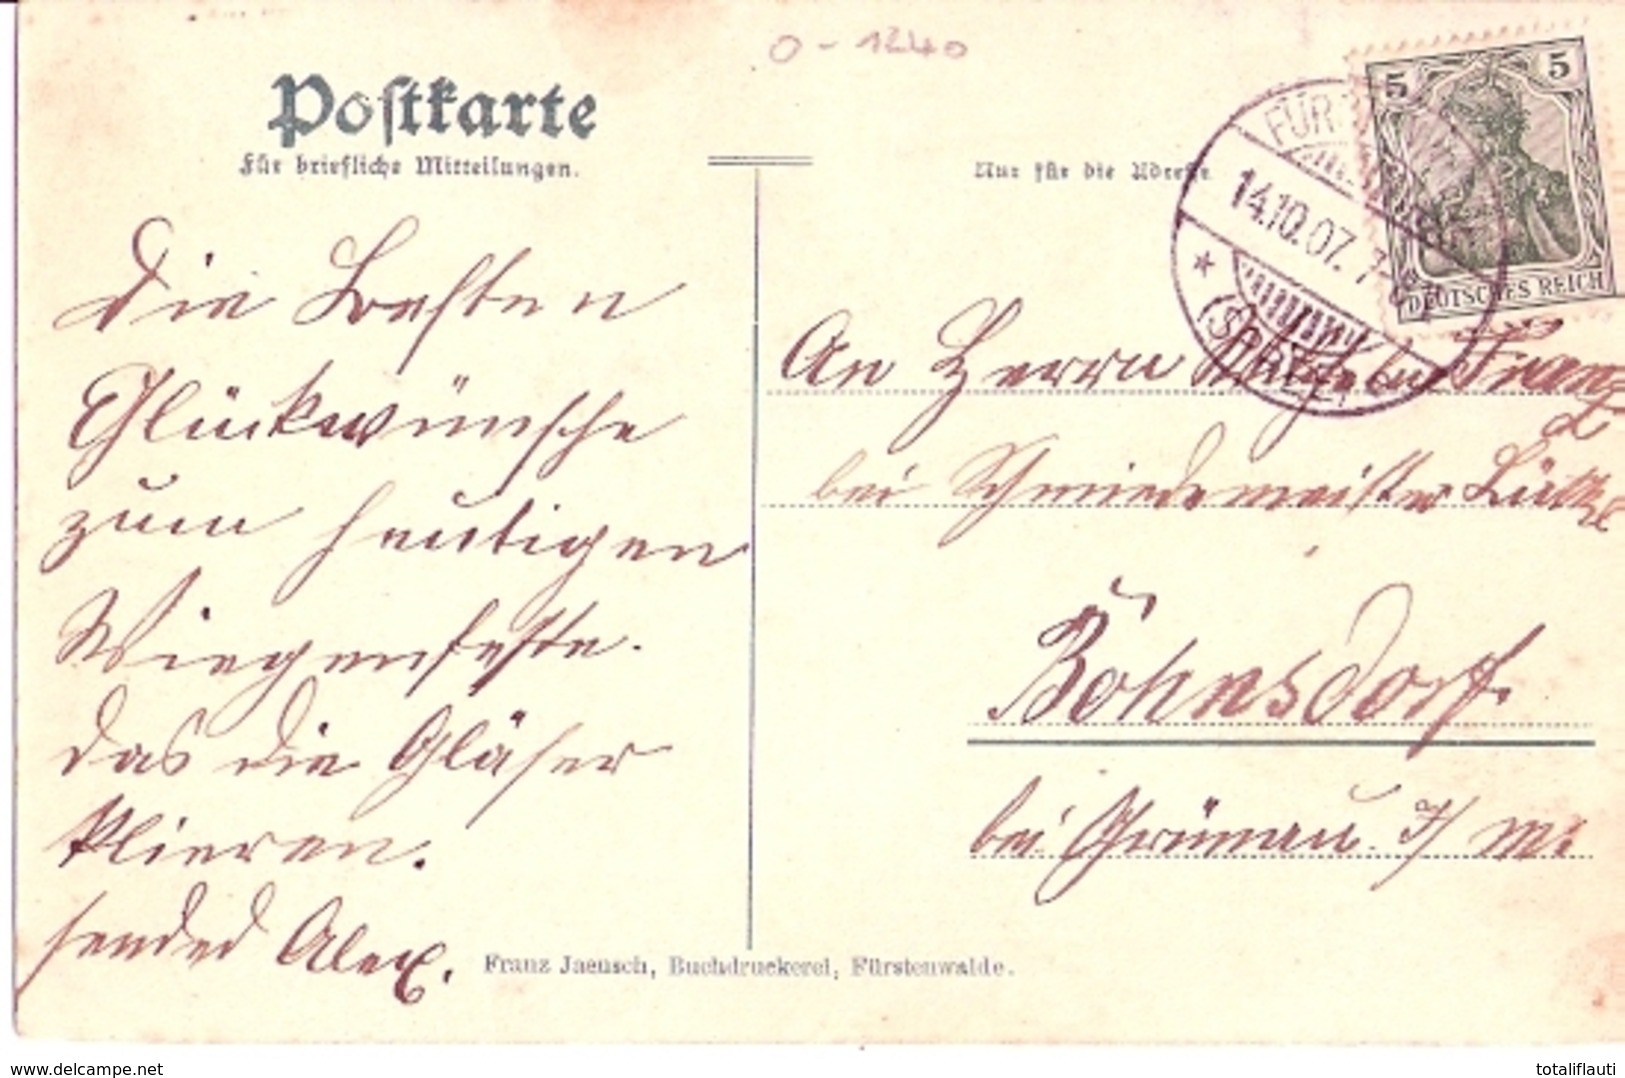 0-1240
Postkarte
Für briefliche Mitteilungen.
Nur für die Adresse
5 5
DEUTSCHES REICH
FÜRST
14.10.07. 7-
(SPREE)
Die besten
Glückwünsche
zum heutigen
Wiegenfeste.
das die Gläser
klieren.
sended Alex.
An Herrn Franz
bei Schmiedemeister
Bohnsdorf.
bei Grünau i/M.
Franz Jaensch, Buchdruckerei, Fürstenwalde.
delcampe.net
totaliflauti